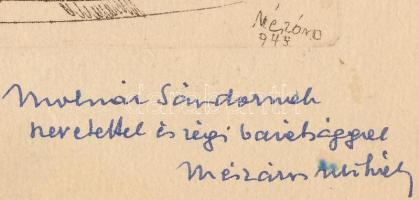 Mészáros
943
Molnár Sándornak
szeretettel és régi barátsággal
Mészáros Mihály